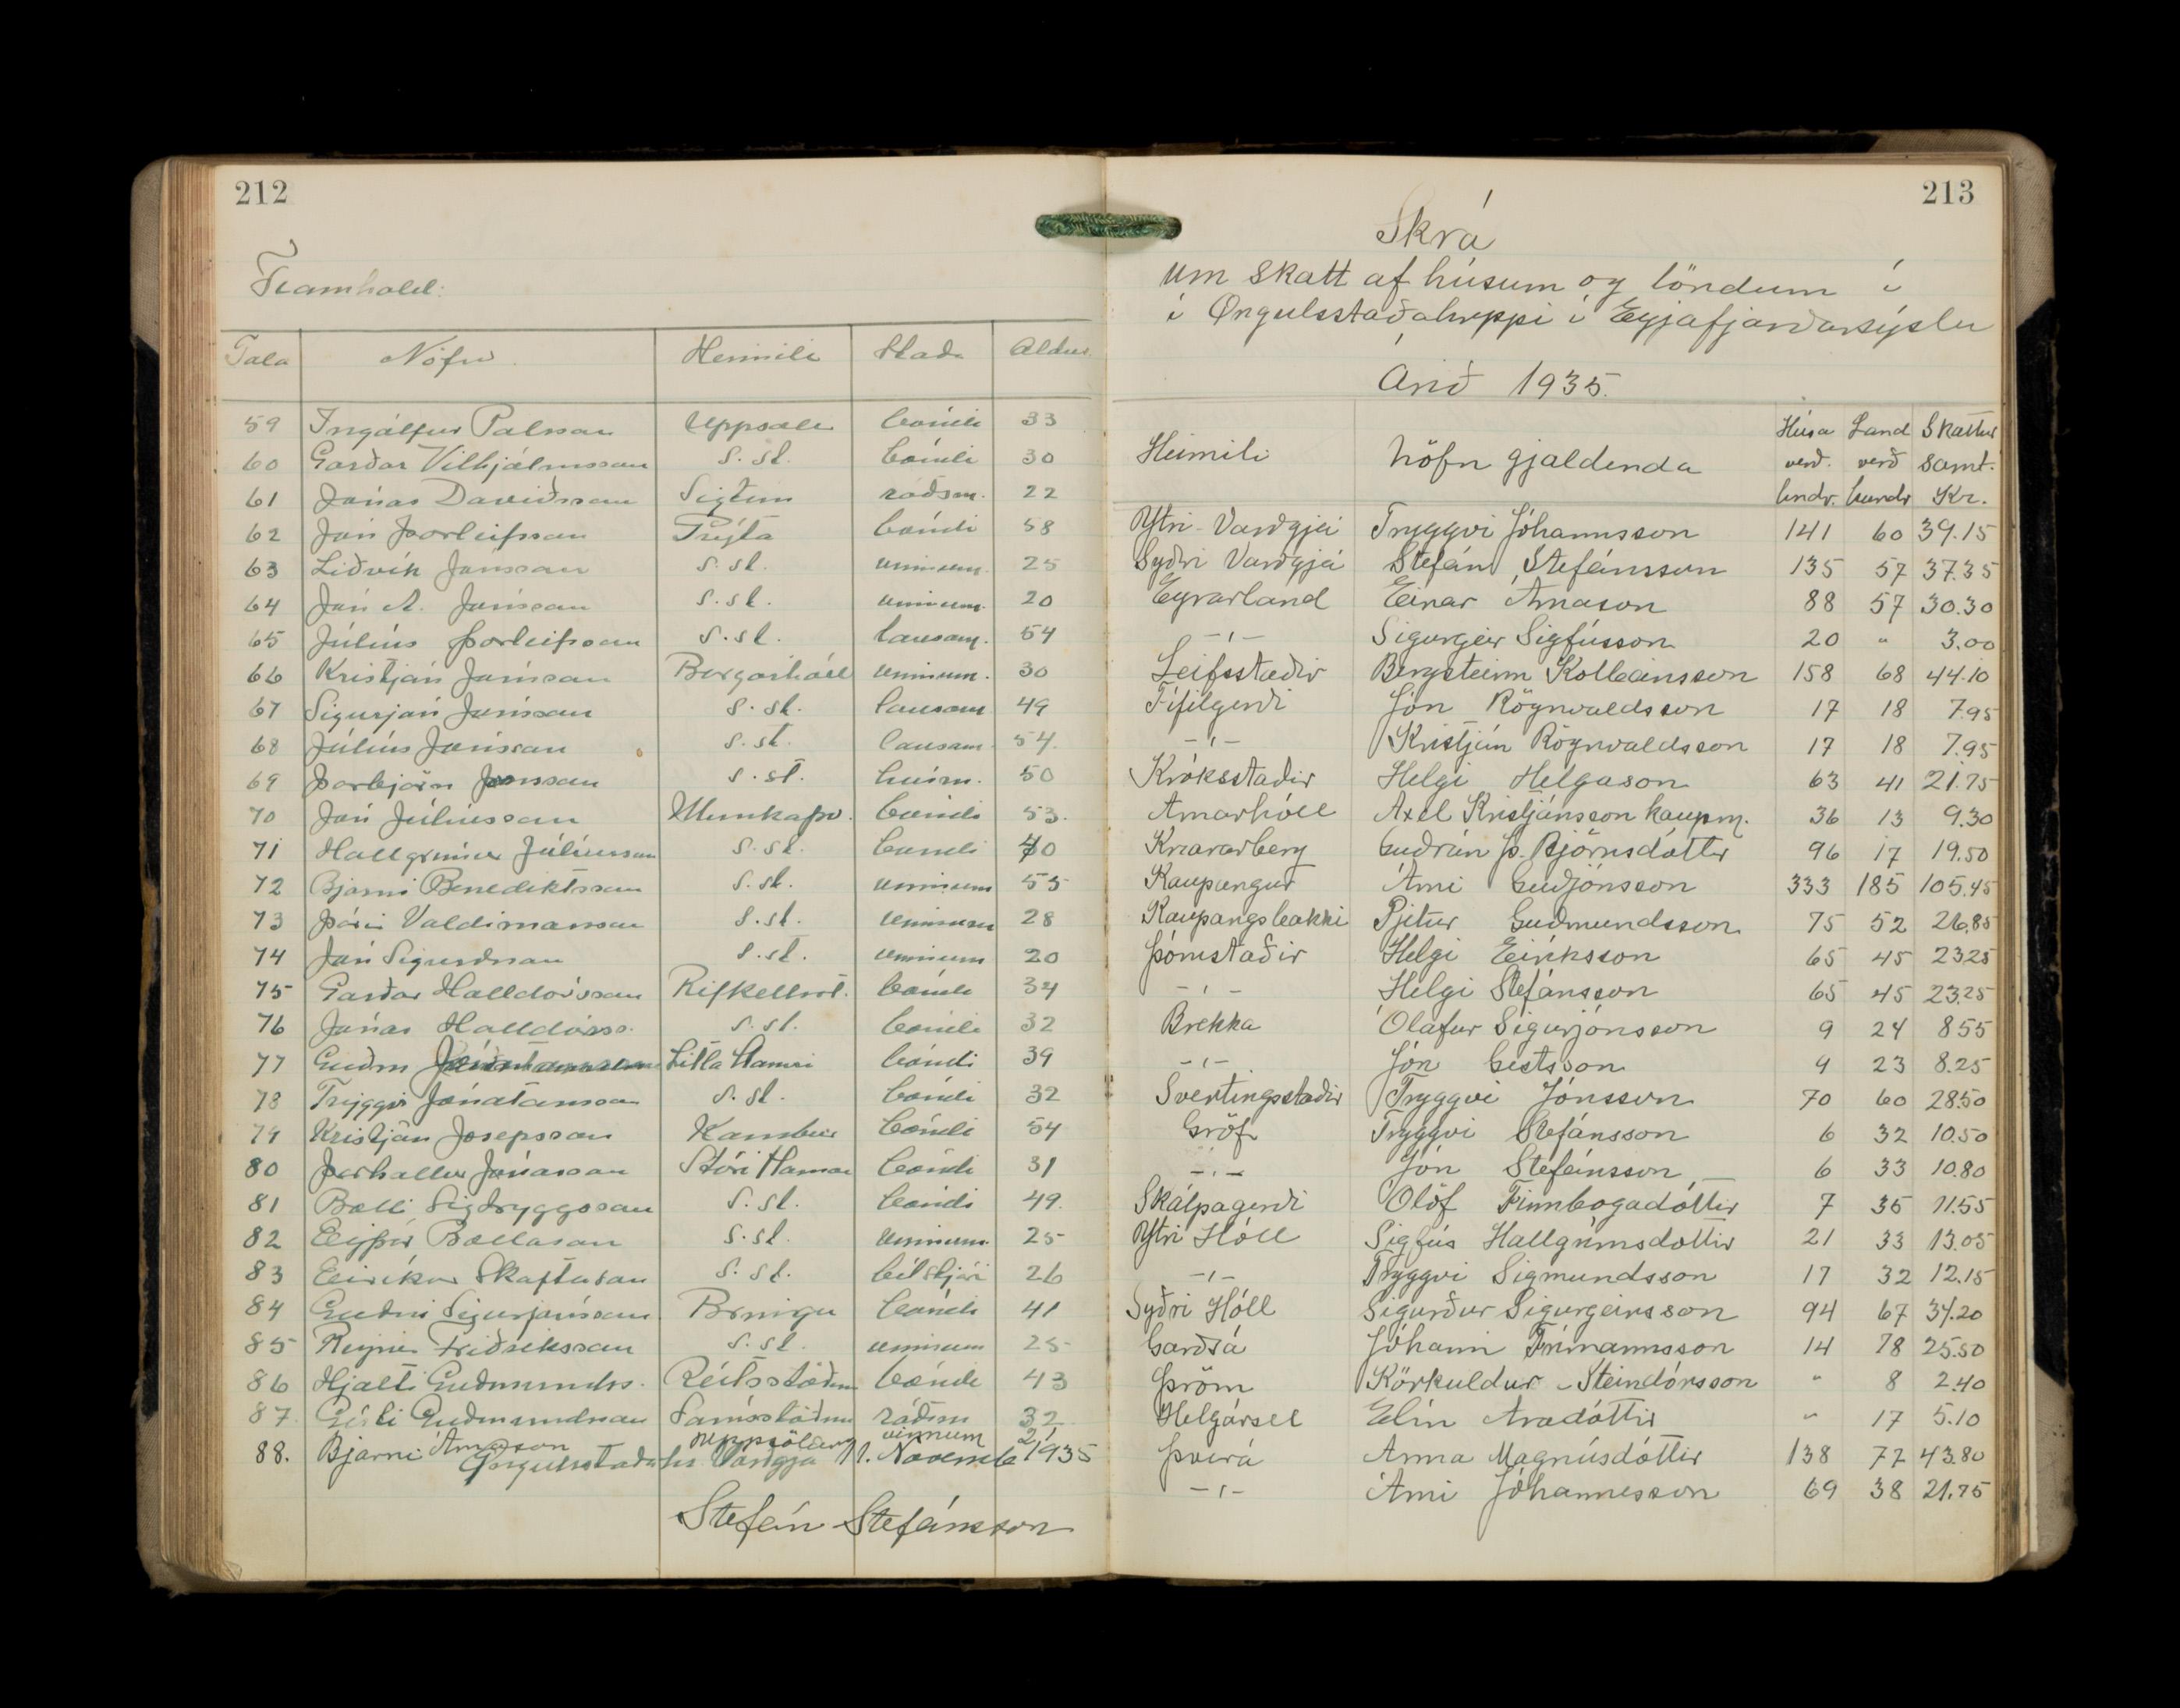 212
Framhald:
Tala Nöfn Heimili Staða Aldur
59 Ingólfur Pálsson Uppsale bóndi 33
60 Garðar Vilhjálmsson s. st. bóndi 30
61 Jónas Davíðsson Sigtún ráðsm. 22
62 Jón Þorleifsson Þrýta bóndi 58
63 Liðvík Jónsson s. st. vinnum. 25
64 Jón A. Jónsson s. st. vinnum. 20
65 Júlíus Þorleifsson s. st. lausam. 54
66 Kristján Jónsson Borgarhóll vinnum. 30
67 Sigurjón Jónsson s. st. lausam. 49
68 Júlíus Jónsson s. st. lausam. 54
69 Þorbjörn Jónsson s. st. húsm. 50
70 Jón Júlíusson Munkaþv. bóndi 53.
71 Hallgrímur Júlíusson s. st. bóndi 40
72 Bjarni Benediktsson s. st. vinnum 55
73 Þórir Valdimarsson s. st. vinnum 28
74 Jón Sigurðsson s. st. vinnum 20
75 Garðar Halldórsson Rifkellsst. bóndi 34
76 Jónas Halldórss. s. st. bóndi 32
77 Guðm Jónatansson Litla Hamri bóndi 39
78 Tryggvi Jónatansson s. st. bóndi 32
79 Kristján Jósepsson Kambur bóndi 54
80 Þórhallur Jónasson Stóri Hamar bóndi 31
81 Balli Sigtryggsson s. st. bóndi 49.
82 Eiþór Ballason s. st. vinnum. 25
83 Eiríkur Skaftason s. st. bílstjóri 26
84 Guðni Sigurjónsson Bringu bóndi 41
85 Reynir Friðriksson s. st. vinnum 25
86 Hjalti Guðmundss. Rútsstöðum bóndi 43
87. Gísli Guðmundsson Sámsstöðum ráðsm 32
88. Bjarni Árnason Uppsölum vinnum 21
Öngulsstaðahr. Varðgjá 11. Novemb 1935
Stefán Stefánsson
213
Skrá
um skatt af húsum og löndum í
í Öngulsstaðahreppi í Eyjafjarðarsýslu
Árið 1935.
Heimili Nöfn gjaldenda Húsa verð. hndr. Land verð hundr Skattur samt. Kr.
Ytri-Varðgjá Tryggvi Jóhannsson 141 60 39.15
Syðri Varðgjá Stefán Stefánsson 135 57 37.35
Eyrarland Einar Árnason 88 57 30.30
-"- Sigurgeir Sigfússon 20 " 3.00
Leifsstaðir Bergsteinn Kolbeinsson 158 68 44.10
Fífilgerði Jón Rögnvaldsson 17 18 7.95
-"- Kristján Rögnvaldsson 17 18 7.95
Króksstaðir Helgi Helgason 63 41 21.75
Arnarhóll Axel Kristjánsson kaupm. 36 13 9.30
Knararberg Guðrún Þ. Björnsdóttir 96 17 19.50
Kaupangur Árni Guðjónsson 333 185 105.45
Kaupangsbakki Pjetur Guðmundsson 75 52 26.85
Þórustaðir Helgi Eiríksson 65 45 23.25
-"- Helgi Stefánsson 65 45 23.25
Brekka Ólafur Sigurjónsson 9 24 8.55
-"- Jón Gestsson 9 23 8.25
Svertingsstaðir Tryggvi Jónsson 70 60 28.50
Gröf Tryggvi Stefánsson 6 32 10.50
-"- Jón Stefánsson 6 33 10.80
Skálpagerði Ólöf Finnbogadóttir 7 35 11.55
Ytri Hóll Sigfús Hallgrímsdóttir 21 33 13.05
-"- Tryggvi Sigmundsson 17 32 12.15
Syðri Hóll Sigurður Sigurgeirsson 94 67 34.20
Garðsá Jóhann Frímannsson 14 78 25.50
Þröm Körkuldur Steindórsson " 8 2.40
Helgársel Elín Aradóttir " 17 5.10
Þverá Anna Magnúsdóttir 138 77 43.80
-"- Árni Jóhannesson 69 38 21.75